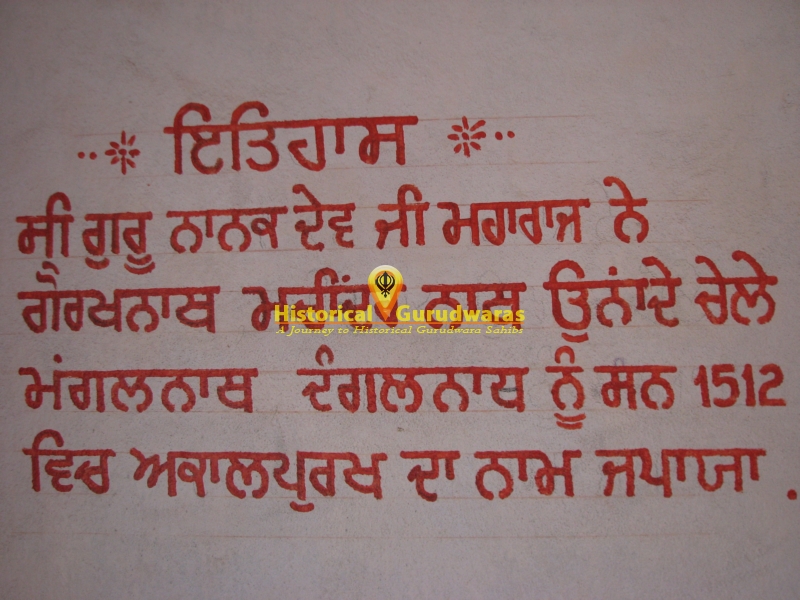 ਇਤਿਹਾਸ
ਸ੍ਰੀ ਗੁਰੂ ਨਾਨਕ ਦੇਵ ਜੀ ਮਹਾਰਾਜ ਨੇ
ਗੋਰਖਨਾਥ ਨਾਥ ਉਨਾਂਦੇ ਚੇਲੇ
Historical Gurudwaras
A Journey to Historical Gurudwara Sahibs
ਮੰਗਲਨਾਥ ਦੰਗਲਨਾਥ ਨੂੰ ਸਨ 1512
ਵਿਚ ਅਕਾਲਪੁਰਖ ਦਾ ਨਾਮ ਜਪਾਯਾ .